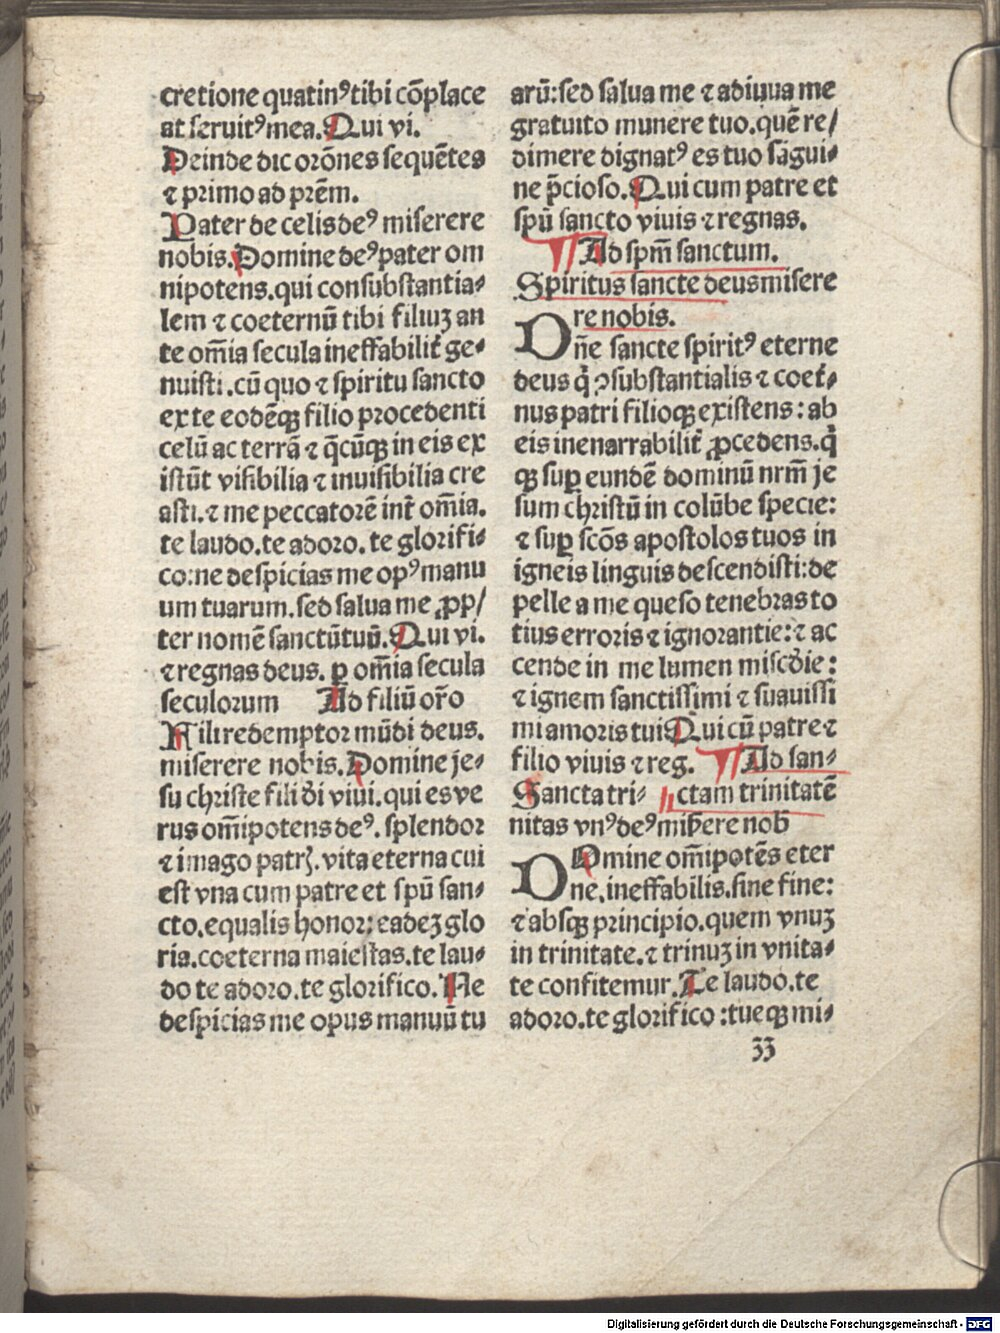 cretione quatinꝰ tibi cōplace
at seruitꝰ mea. Qui vi.
Deinde dic orōnes sequētes
⁊ primo ad prēm.
Pater de celis deꝰ miserere
nobis. Domine deꝰ pater om
nipotens. qui consubstantia⸗
lem ⁊ coeternū tibi filiuʒ an
te om̄ia secula ineffabilit̄ ge⸗
nuisti. cū quo ⁊ spiritu sancto
ex te eodēqꝫ filio procedenti
celū ac terrā ⁊ q̄cūqꝫ in eis ex
istūt visibilia ⁊ inuisibilia cre
asti. ⁊ me peccatorē int̄ om̄ia.
te laudo. te adoro. te glorifi⸗
co: ne despicias me opꝰ manu
um tuarum. sed salua me ꝓp/
ter nomē sanctū tuū. Qui vi.
⁊ regnas deus. ꝑ om̄ia secula
seculorum Ad filiū orōo
Fili redemptor mūdi deus.
miserere nobis. Domine je⸗
su christe fili d̄i viui. qui es ve
rus om̄ipotens deꝰ. splendor
⁊ imago patrꝭ. vita eterna cui
est vna cum patre et spū san⸗
cto. equalis honor: eadeʒ glo
ria. coeterna maiestas. te lau⸗
do te adoro. te glorifico. Ne
despicias me opus manuū tu
arū: sed salua me ⁊ adiuua me
gratuito munere tuo. quē re/
dimere dignatꝰ es tuo sāgui⸗
ne p̄cioso. Qui cum patre et
spū sancto viuis ⁊ regnas.
¶ Ad spm̄ sanctum.
Spiritus sancte deus misere
re nobis.
Dn̄e sancte spiritꝰ eterne
deus q̄ ꝯsubstantialis ⁊ coet̄⸗
nus patri filioqꝫ existens: ab
eis inenarrabilit̄ ꝓcedens. q̄
qꝫ suꝑ eundē dominū nrm̄ je
sum christū in colūbe specie:
⁊ suꝑ scōs apostolos tuos in
igneis linguis descendisti: de
pelle a me queso tenebras to
tius erroris ⁊ ignorantie: ⁊ ac
cende in me lumen misc̄die:
⁊ ignem sanctissimi ⁊ suauissi
mi amoris tui Qui cū patre ⁊
filio viuis ⁊ reg. ¶ Ad san⸗
Sancta tri⸗ ctam trinitatē
nitas vnꝰ deꝰ miẜere nob̄
Domine om̄ipotēs eter
ne. ineffabilis. sine fine:
⁊ absqꝫ principio. quem vnuʒ
in trinitate. ⁊ trinuʒ in vnita⸗
te confitemur. Te laudo. te
adoro. te glorifico: tueqꝫ mi⸗
33
Digitalisierung gefördert durch die Deutsche Forschungsgemeinschaft - DFG